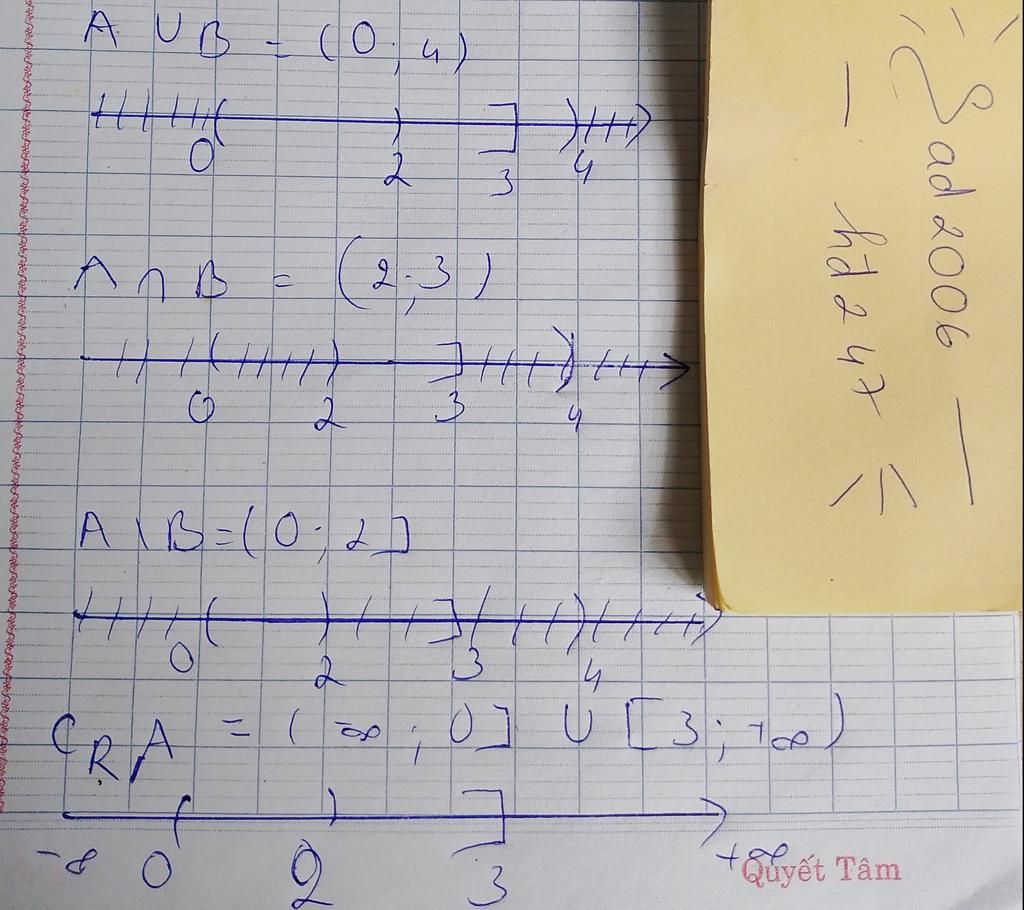 A ∪ B = (0; 4)
0 2 3 4
A ∩ B = (2; 3)
0 2 3 4
A \ B = (0; 2]
0 2 3 4
C_R A = (-∞; 0] ∪ [3; +∞)
-∞ 0 2 3 +∞
Quyết Tâm
Sad2006
hd247